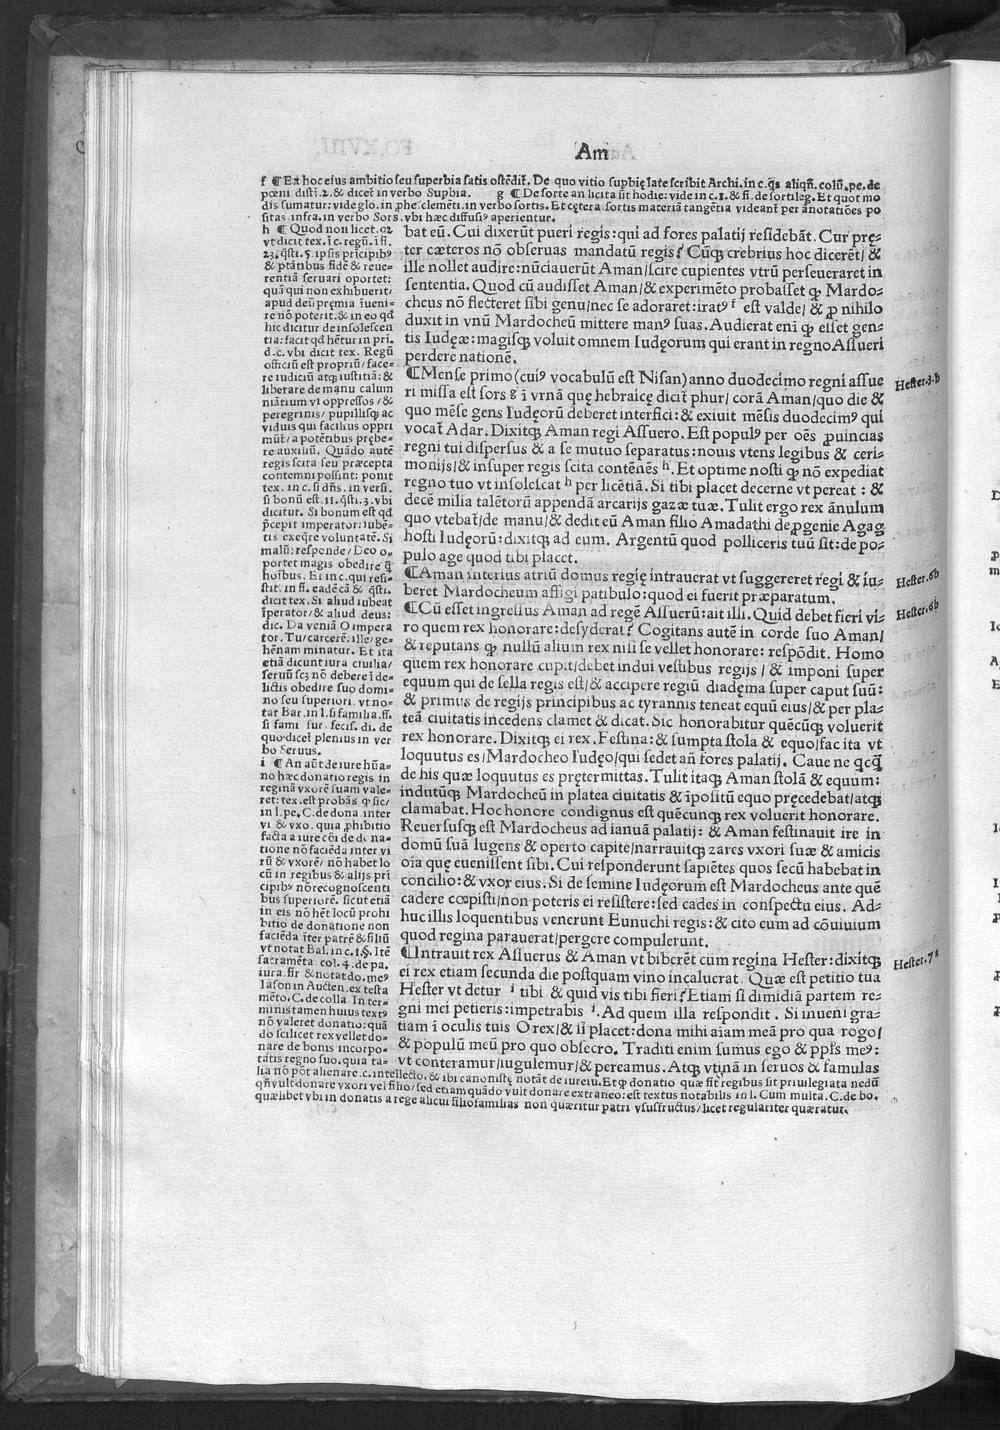 Am
f ¶ Ex hoc eius ambitio seu superbia satis ostēdit̄. De quo vitio supbię late scribit Archi. in c. q̄s aliqñ. colū. pe. de
pœni disti. 2. & dicet̄ in verbo Supbia. g ¶ De sorte an licita sit hodie: vide in c. 1. & fi. de sortileg. Et quot mo
dis sumatur: vide glo. in phe. clemēti. in verbo sortis. Et cętera sortis materiā tangētia videant̄ per ānotatiōes po
sitas infra. in verbo Sors. vbi hæc diffusiꝰ aperientur.
h ¶ Quod non licet. q2
vt dicit tex. ī c. regū. ī fi.
23. q̄sti. 5. ipsis pricipibꝰ
& p̄latibus fidē & reue-
rentiā seruari oportet:
quā qui non exhibuerit/
apud deū pręmia īueni-
re nō poterit. & in eo qd
hic dicitur de insolescen
tia: facit qd hētur in pri.
d. c. vbi dicit tex. Regū
officiū est propriū/ face-
re iudiciū atqꝫ iustitiā: &
liberare de manu calum
niātium vi oppressos /&
peregrinis/ pupillisqꝫ ac
viduis qui facilius oppri
mūt̄/ a potētibus prębe-
re auxiliū. Quādo autē
regis scita seu præcepta
contemni possint: ponit
tex. in c. si dñs. in versi.
si bonū est. 11. q̄sti. 3. vbi
dicitur. Si bonum est qd
p̄cepit imperator: iubē-
tis exeq̄re voluntatē. Si
malū: respōde/ Deo o-
portet magis obedire q̄
hoībus. Et in c. qui resi-
stit. in fi. eadē cā & q̄sti.
dicit tex. Si aliud iubeat
īperator/& aliud deus:
dic. Da veniā O impera
tor. Tu/ carcerē: ille/ ge-
hēnam minatur. Et ita
etiā dicunt iura ciuilia/
seruū scꝫ nō debere ī de-
lictis obedire suo domi-
no seu superiori. vt no-
tat Bar. in l. si familia. ff.
si fami. fur. fecis. di. de
quo dicet̄ plenius in ver
bo Seruus.
i ¶ An aūt de iure hūa-
no hæc donatio regis in
reginā vxorē suam vale-
ret: tex. est probās ꝙ sic/
in l. pe. C. de dona. inter
vi. & vxo. quia phibitio
facta a iure cōi de do na-
tione nō faciēda inter vi
rū & vxorē/ nō habet lo
cū in regibus & alijs pri
cipibꝰ nō recognoscenti
bus superiorē. sicut etiā
in eis nō hēt locū prohi
bitio de donatione non
faciēda īter patrē & filiū
vt notat Bal. in c. 1. §. Itē
sacramēta. col. 4. de pa.
iura. fir. & notat do. meꝰ
Iason in Aucten. ex testa
mēto. C. de colla. In ter-
minis tamen huius textꝰ
nō valeret donatio: quā
do scilicet rex vellet do-
nare de bonis incorpo-
ratis regno suo. quia ta-
lia nō pōt alienare. c. intellecto. & ibi canonistę notāt de iureiu. Et ꝙ donatio quæ fit̄ regibus sit priuilegiata nedū
qñ vult donare vxori vel filio/ sed etiam quādo vult donare extraneo: est textus notabilis in l. Cum multa. C. de bo.
quæ libet vbi in donatis a rege alicui filiofamilias non quæritur patri vsusfructus/ licet regulariter quæratur.
bat eū. Cui dixerūt pueri regis: qui ad fores palatij residebāt. Cur prę-
ter cæteros nō obseruas mandatū regis? Cūqꝫ crebrius hoc dicerēt/ &
ille nollet audire: nūciauerūt Aman/ scire cupientes vtrū perseueraret in
sententia. Quod cū audisset Aman/ & experimēto probasset ꝙ Mardo-
cheus nō flecteret sibi genu/ nec se adoraret: iratꝰ f est valde/ & ꝓ nihilo
duxit in vnū Mardocheū mittere manꝰ suas. Audierat enī ꝙ esset gen-
tis Iudęæ: magisqꝫ voluit omnem Iudęorum qui erant in regno Assueri
perdere nationē.
¶ Mense primo (cuiꝰ vocabulū est Nisan) anno duodecimo regni assue
ri missa est sors g ī vrnā quę hebraicę dicit̄ phur/ corā Aman/ quo die &
quo mēse gens Iudęorū deberet interfici: & exiuit mēsis duodecimꝰ qui
vocat̄ Adar. Dixitqꝫ Aman regi Assuero. Est populꝰ per oēs ꝓuincias
regni tui dispersus & a se mutuo separatus: nouis vtens legibus & ceri-
monijs/ & insuper regis scita contēnēs h. Et optime nosti ꝙ nō expediat
regno tuo vt insolescat h per licētiā. Si tibi placet decerne vt pereat : &
decē milia talētorū appendā arcarijs gazæ tuæ. Tulit ergo rex ānulum
quo vtebat̄/ de manu/ & dedit eū Aman filio Amadathi de ꝓgenie Agag
hosti Iudęorū: dixitqꝫ ad eum. Argentū quod polliceris tuū sit: de po-
pulo age quod tibi placet.
¶ Aman interius atriū domus regię intrauerat vt suggereret regi & iu-
beret Mardocheum affigi patibulo: quod ei fuerit præparatum.
¶ Cū esset ingressus Aman ad regē Assuerū: ait illi. Quid debet fieri vi-
ro quem rex honorare: desyderat? Cogitans autē in corde suo Aman/
& reputans ꝙ nullū alium rex nisi se vellet honorare: respōdit. Homo
quem rex honorare cupit/ debet indui vestibus regijs / & imponi super
equum qui de sella regis est/ & accipere regiū diadęma super caput suū:
& primus de regijs principibus ac tyrannis teneat equū eius/ & per pla-
teā ciuitatis incedens clamet & dicat. Sic honorabitur quēcūqꝫ voluerit
rex honorare. Dixitqꝫ ei rex. Festina: & sumpta stola & equo/ fac ita vt
loquutus es/ Mardocheo Iudęo/ qui sedet an̄ fores palatij. Caue ne qcq̄
de his quæ loquutus es prętermittas. Tulit itaqꝫ Aman stolā & equum:
indutūqꝫ Mardocheū in platea ciuitatis & īpositū equo pręcedebat/ atqꝫ
clamabat. Hoc honore condignus est quēcunqꝫ rex voluerit honorare.
Reuersusqꝫ est Mardocheus ad ianuā palatij: & Aman festinauit ire in
domū suā lugens & operto capite/ narrauitqꝫ zares vxori suæ & amicis
oīa quę euenissent sibi. Cui responderunt sapiētes quos secū habebat in
concilio: & vxor eius. Si de semine Iudęorum est Mardocheus ante quē
cadere cœpisti/ non poteris ei resistere: sed cades in conspectu eius. Ad-
huc illis loquentibus venerunt Eunuchi regis: & cito eum ad cōuiuium
quod regina parauerat/ pergere compulerunt.
¶ Intrauit rex Assuerus & Aman vt biberēt cum regina Hester: dixitqꝫ
ei rex etiam secunda die postquam vino incaluerat. Quæ est petitio tua
Hester vt detur i tibi & quid vis tibi fieri? Etiam si dimidiā partem re-
gni mei petieris: impetrabis i. Ad quem illa respondit. Si inueni gra-
tiam ī oculis tuis O rex/ & si placet: dona mihi aīam meā pro qua rogo/
& populū meū pro quo obsecro. Traditi enim sumus ego & ppl̄s meꝰ:
vt conteramur/ iugulemur/ & pereamus. Atqꝫ vtinā in seruos & famulas
Hester. 3. b
Hester. 6 b
Hester. 6 b
Hester. 7 a